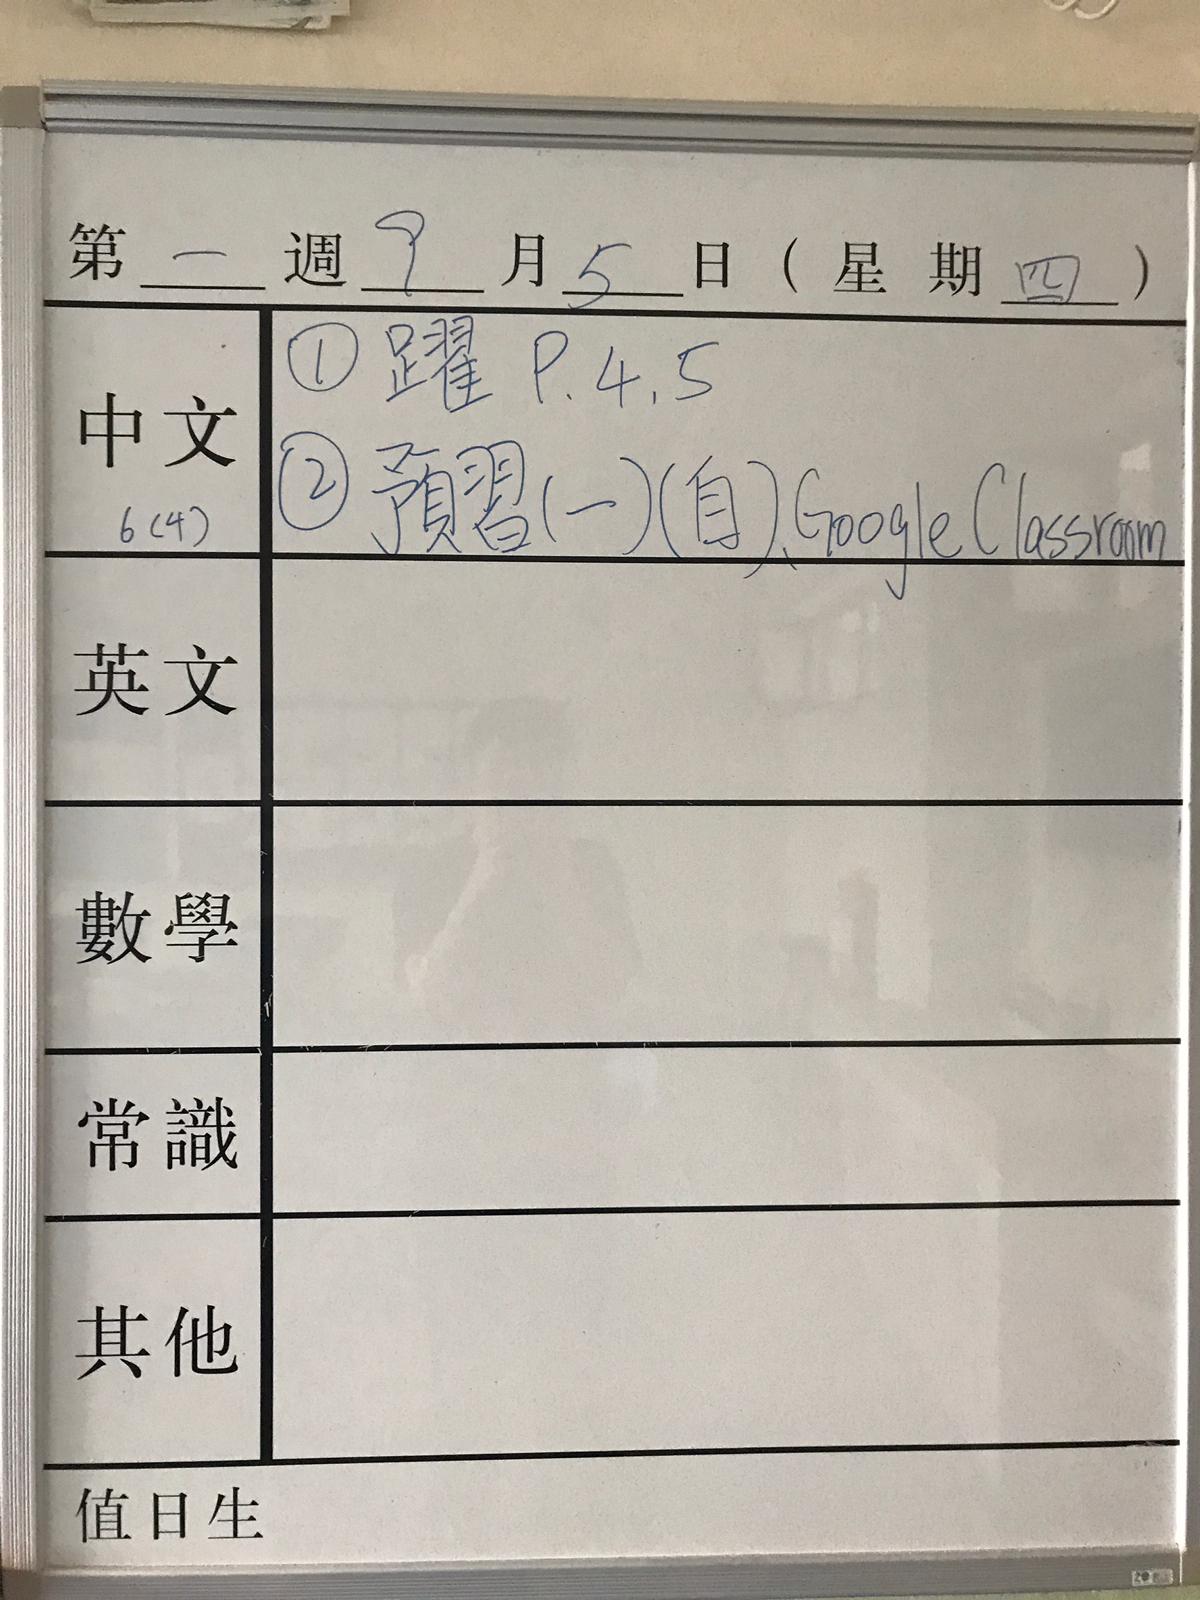 第一週9月5日(星期四)
中文
6(4)
① 躍 P.4,5
② 預習(一)(自)、Google Classroom
英文
數學
常識
其他
值日生